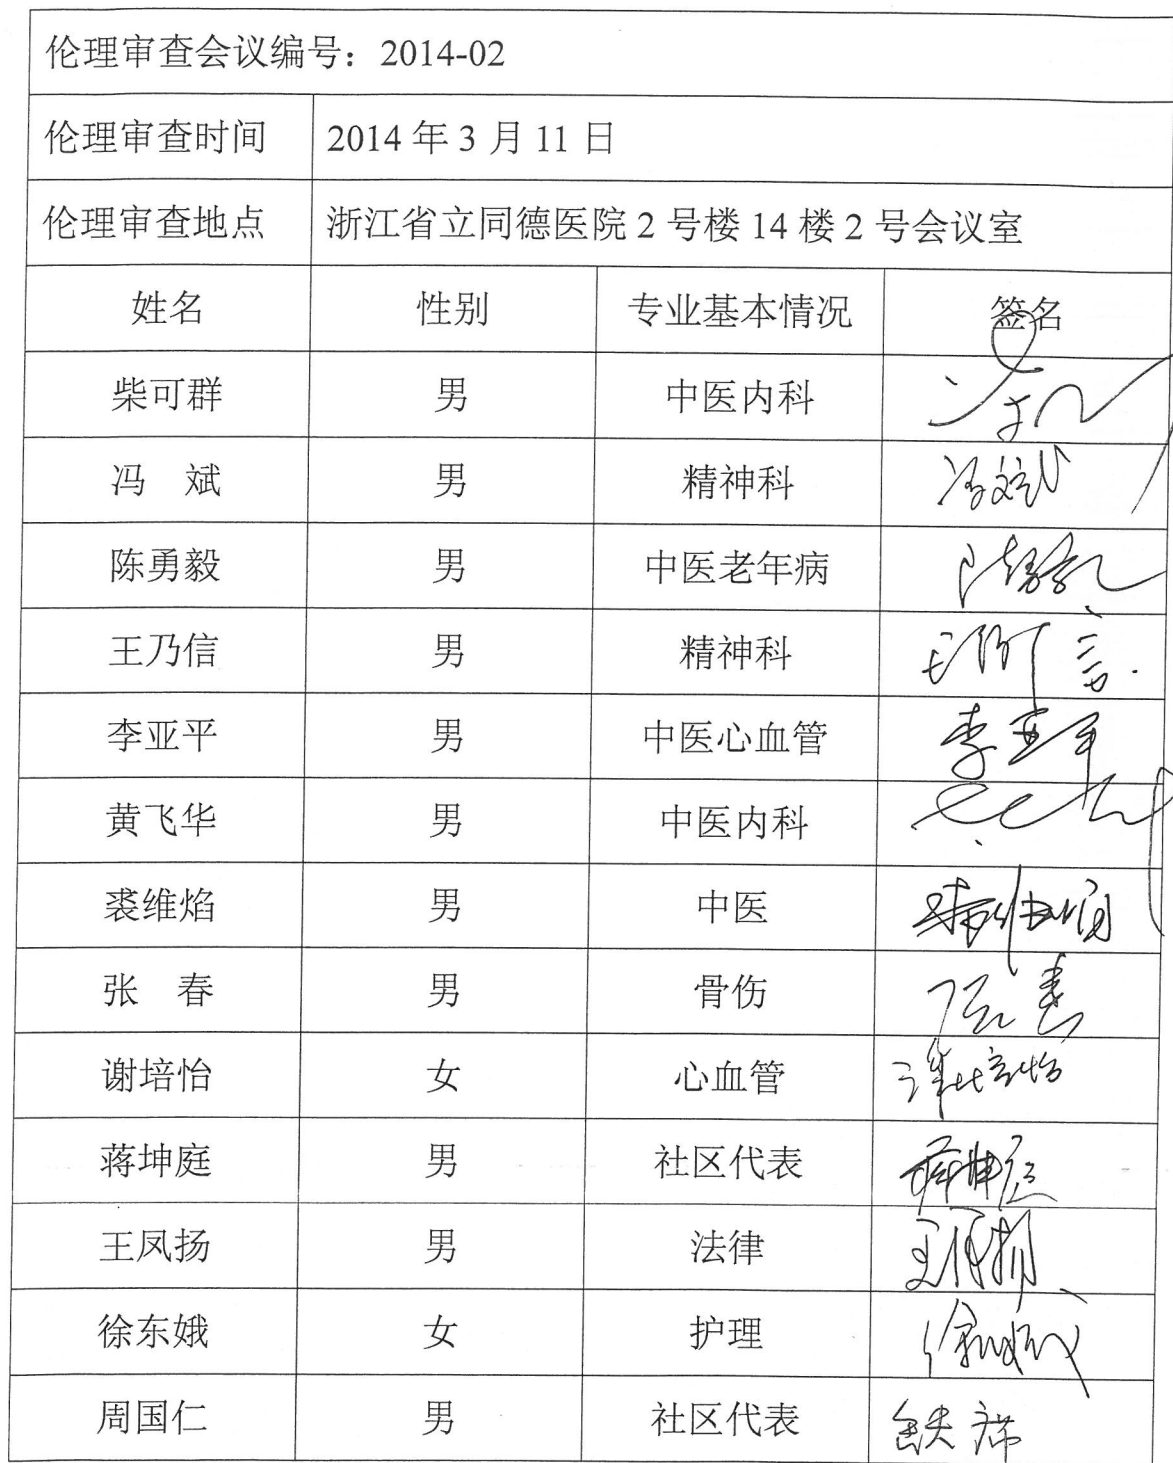 伦理审查会议编号：2014-02
伦理审查时间 2014 年 3 月 11 日
伦理审查地点 浙江省立同德医院 2 号楼 14 楼 2 号会议室
姓名 性别 专业基本情况 签名
柴可群 男 中医内科
冯 斌 男 精神科 冯斌
陈勇毅 男 中医老年病 陈勇毅
王乃信 男 精神科
李亚平 男 中医心血管 李亚平
黄飞华 男 中医内科
裘维焰 男 中医
张 春 男 骨伤 张春
谢培怡 女 心血管 谢培怡
蒋坤庭 男 社区代表 蒋坤庭
王凤扬 男 法律 王凤扬
徐东娥 女 护理 徐东娥
周国仁 男 社区代表 缺席